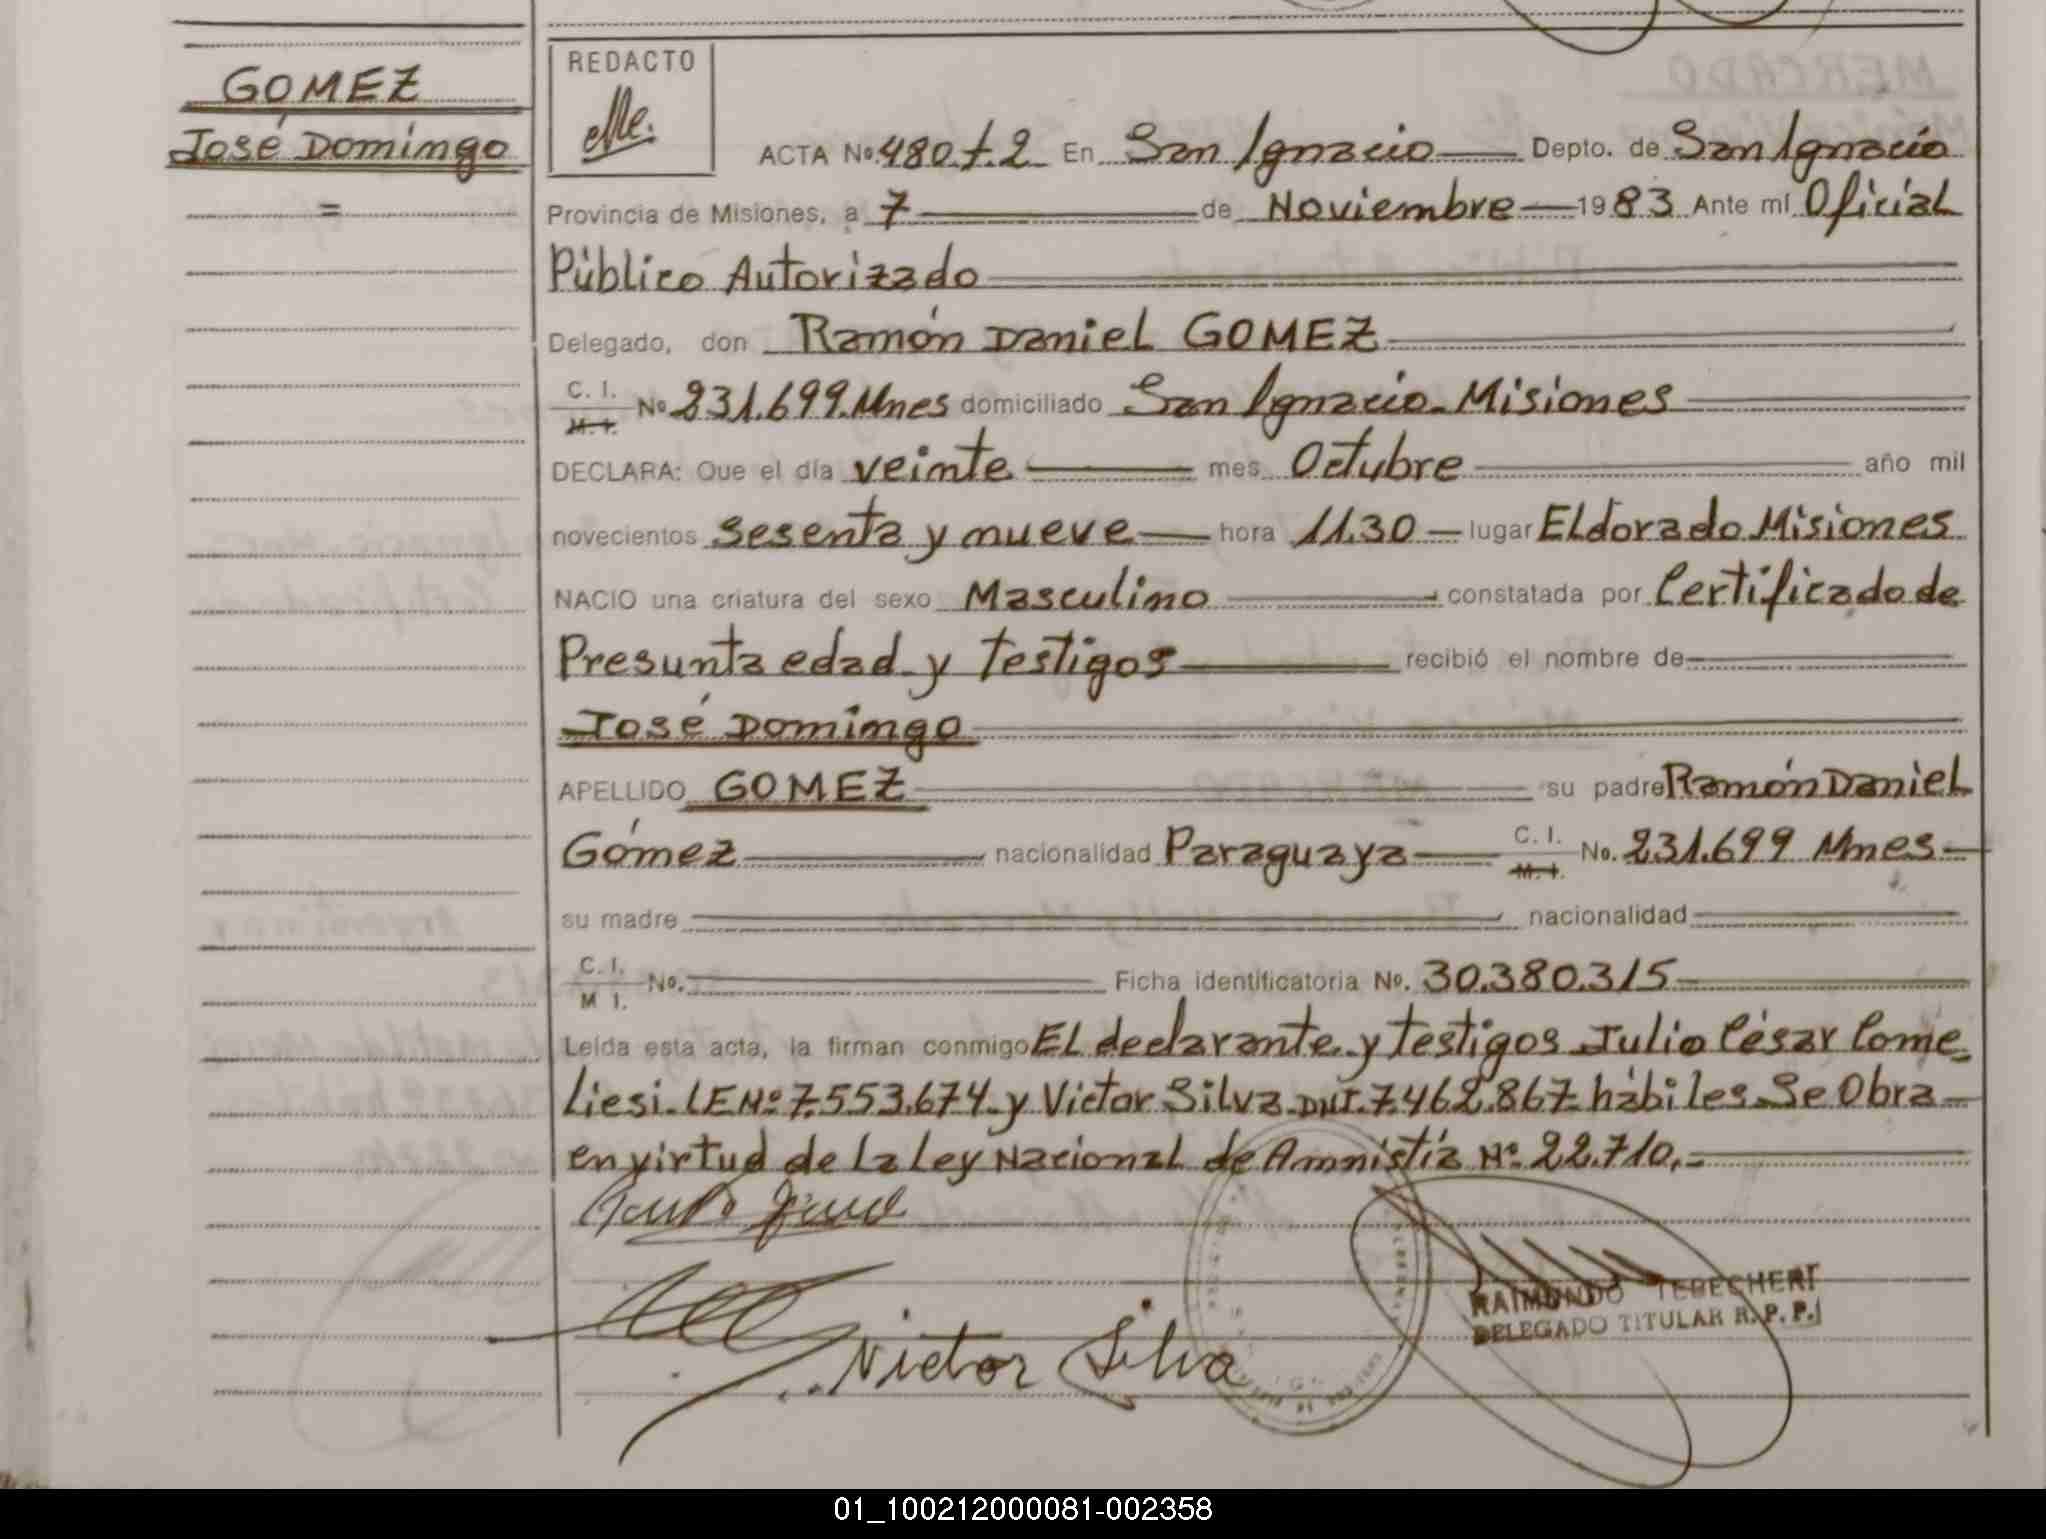 GOMEZ
José Domingo
=
REDACTO
ACTA Nº 480 t. 2 En San Ignacio Depto. de San Ignacio
Provincia de Misiones, a 7 de Noviembre 1983 Ante mí Oficial
Público Autorizado
Delegado, don Ramón Daniel GOMEZ
C. I.
M. I. Nº 231.699 Mnes domiciliado San Ignacio Misiones
DECLARA: Que el día veinte mes Octubre año mil
novecientos sesenta y nueve hora 11.30 lugar Eldorado Misiones
NACIO una criatura del sexo Masculino constatada por Certificado de
Presunta edad y testigos recibió el nombre de
José Domingo
APELLIDO GOMEZ su padre Ramón Daniel
Gómez nacionalidad Paraguaya C. I. M. I. No. 231.699 Mnes
su madre nacionalidad
C. I.
M I. No. Ficha identificatoria Nº. 30.380.315
Leída esta acta, la firman conmigo El declarante y testigos Julio César Come
liesi LE Nº 7.553.674 y Victor Silva DNI. 7.462.867 hábiles Se Obra
en virtud de la Ley Nacional de Amnistía Nº 22.710.=
Victor Silva
RAIMUNDO TEBECHERI
DELEGADO TITULAR R. P. P.
01_100212000081-002358